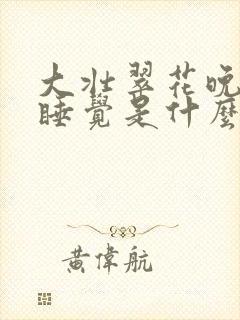 大壯翠花晚
睡覺是什麼
黃偉航